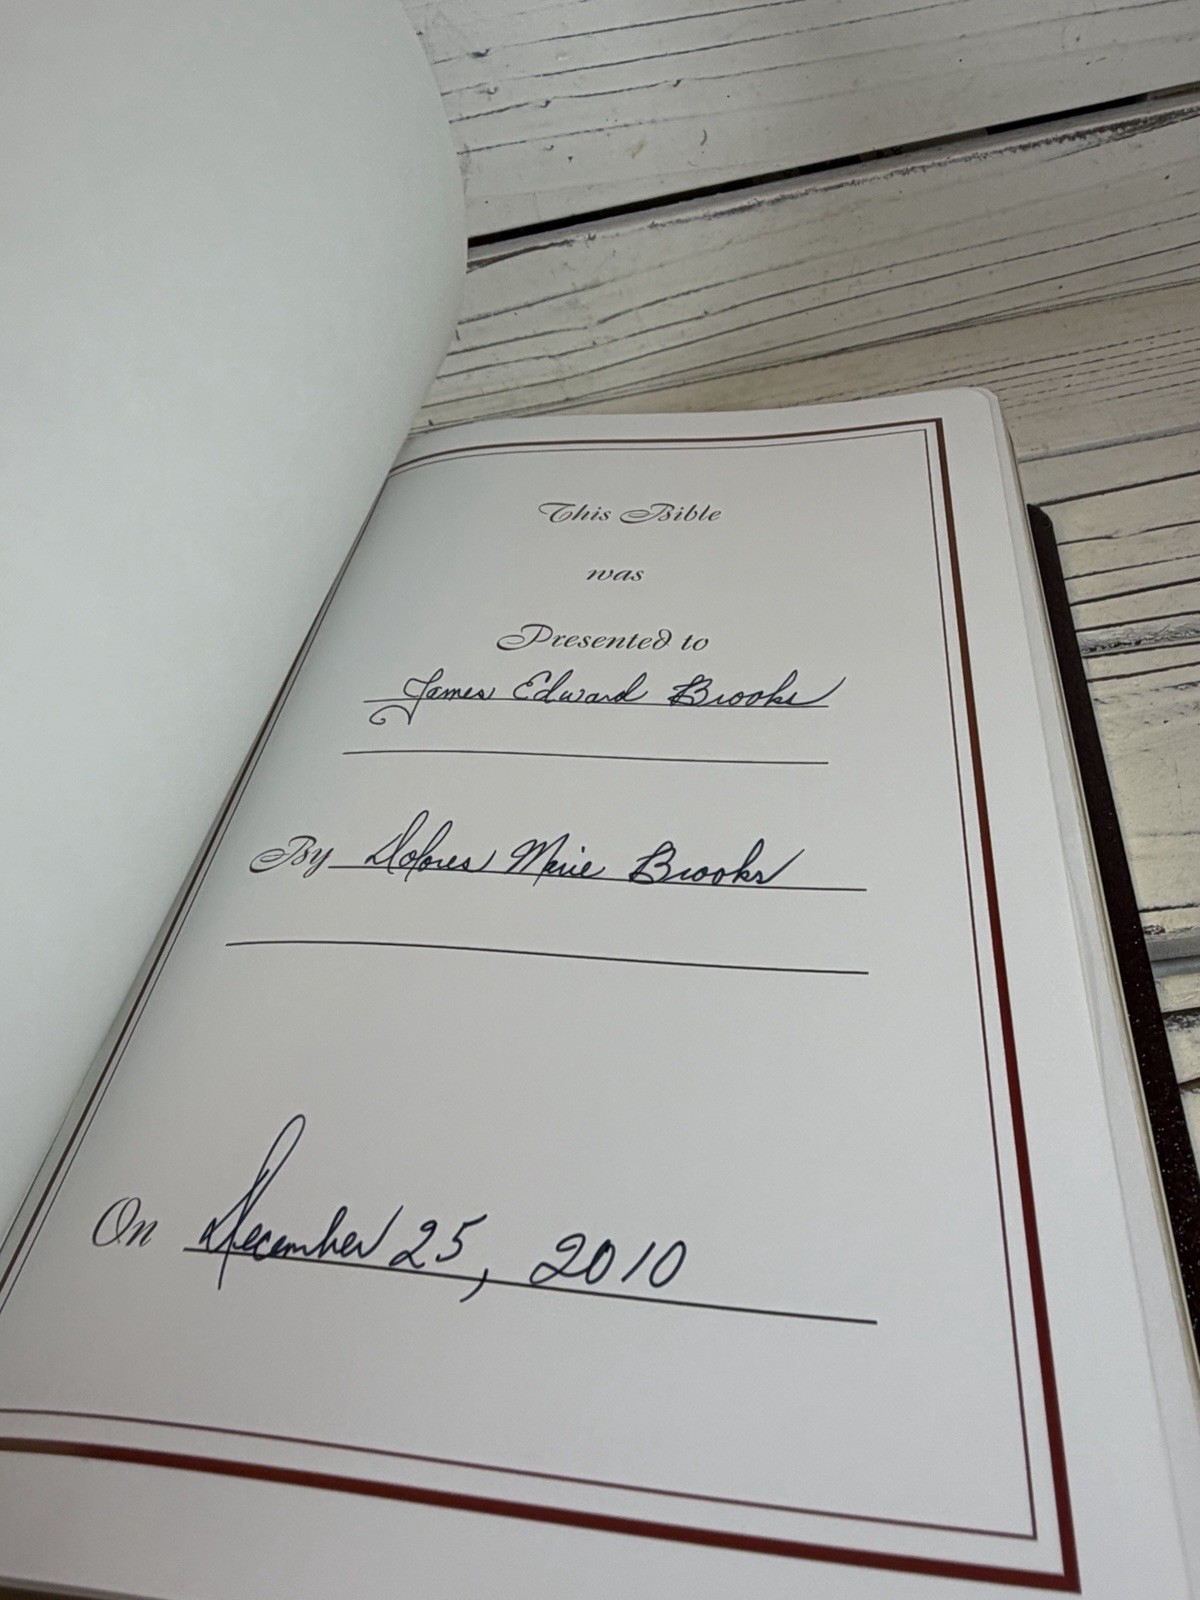 This Bible
was
Presented to
James Edward Brooks
By Dolores Marie Brooks
On December 25, 2010